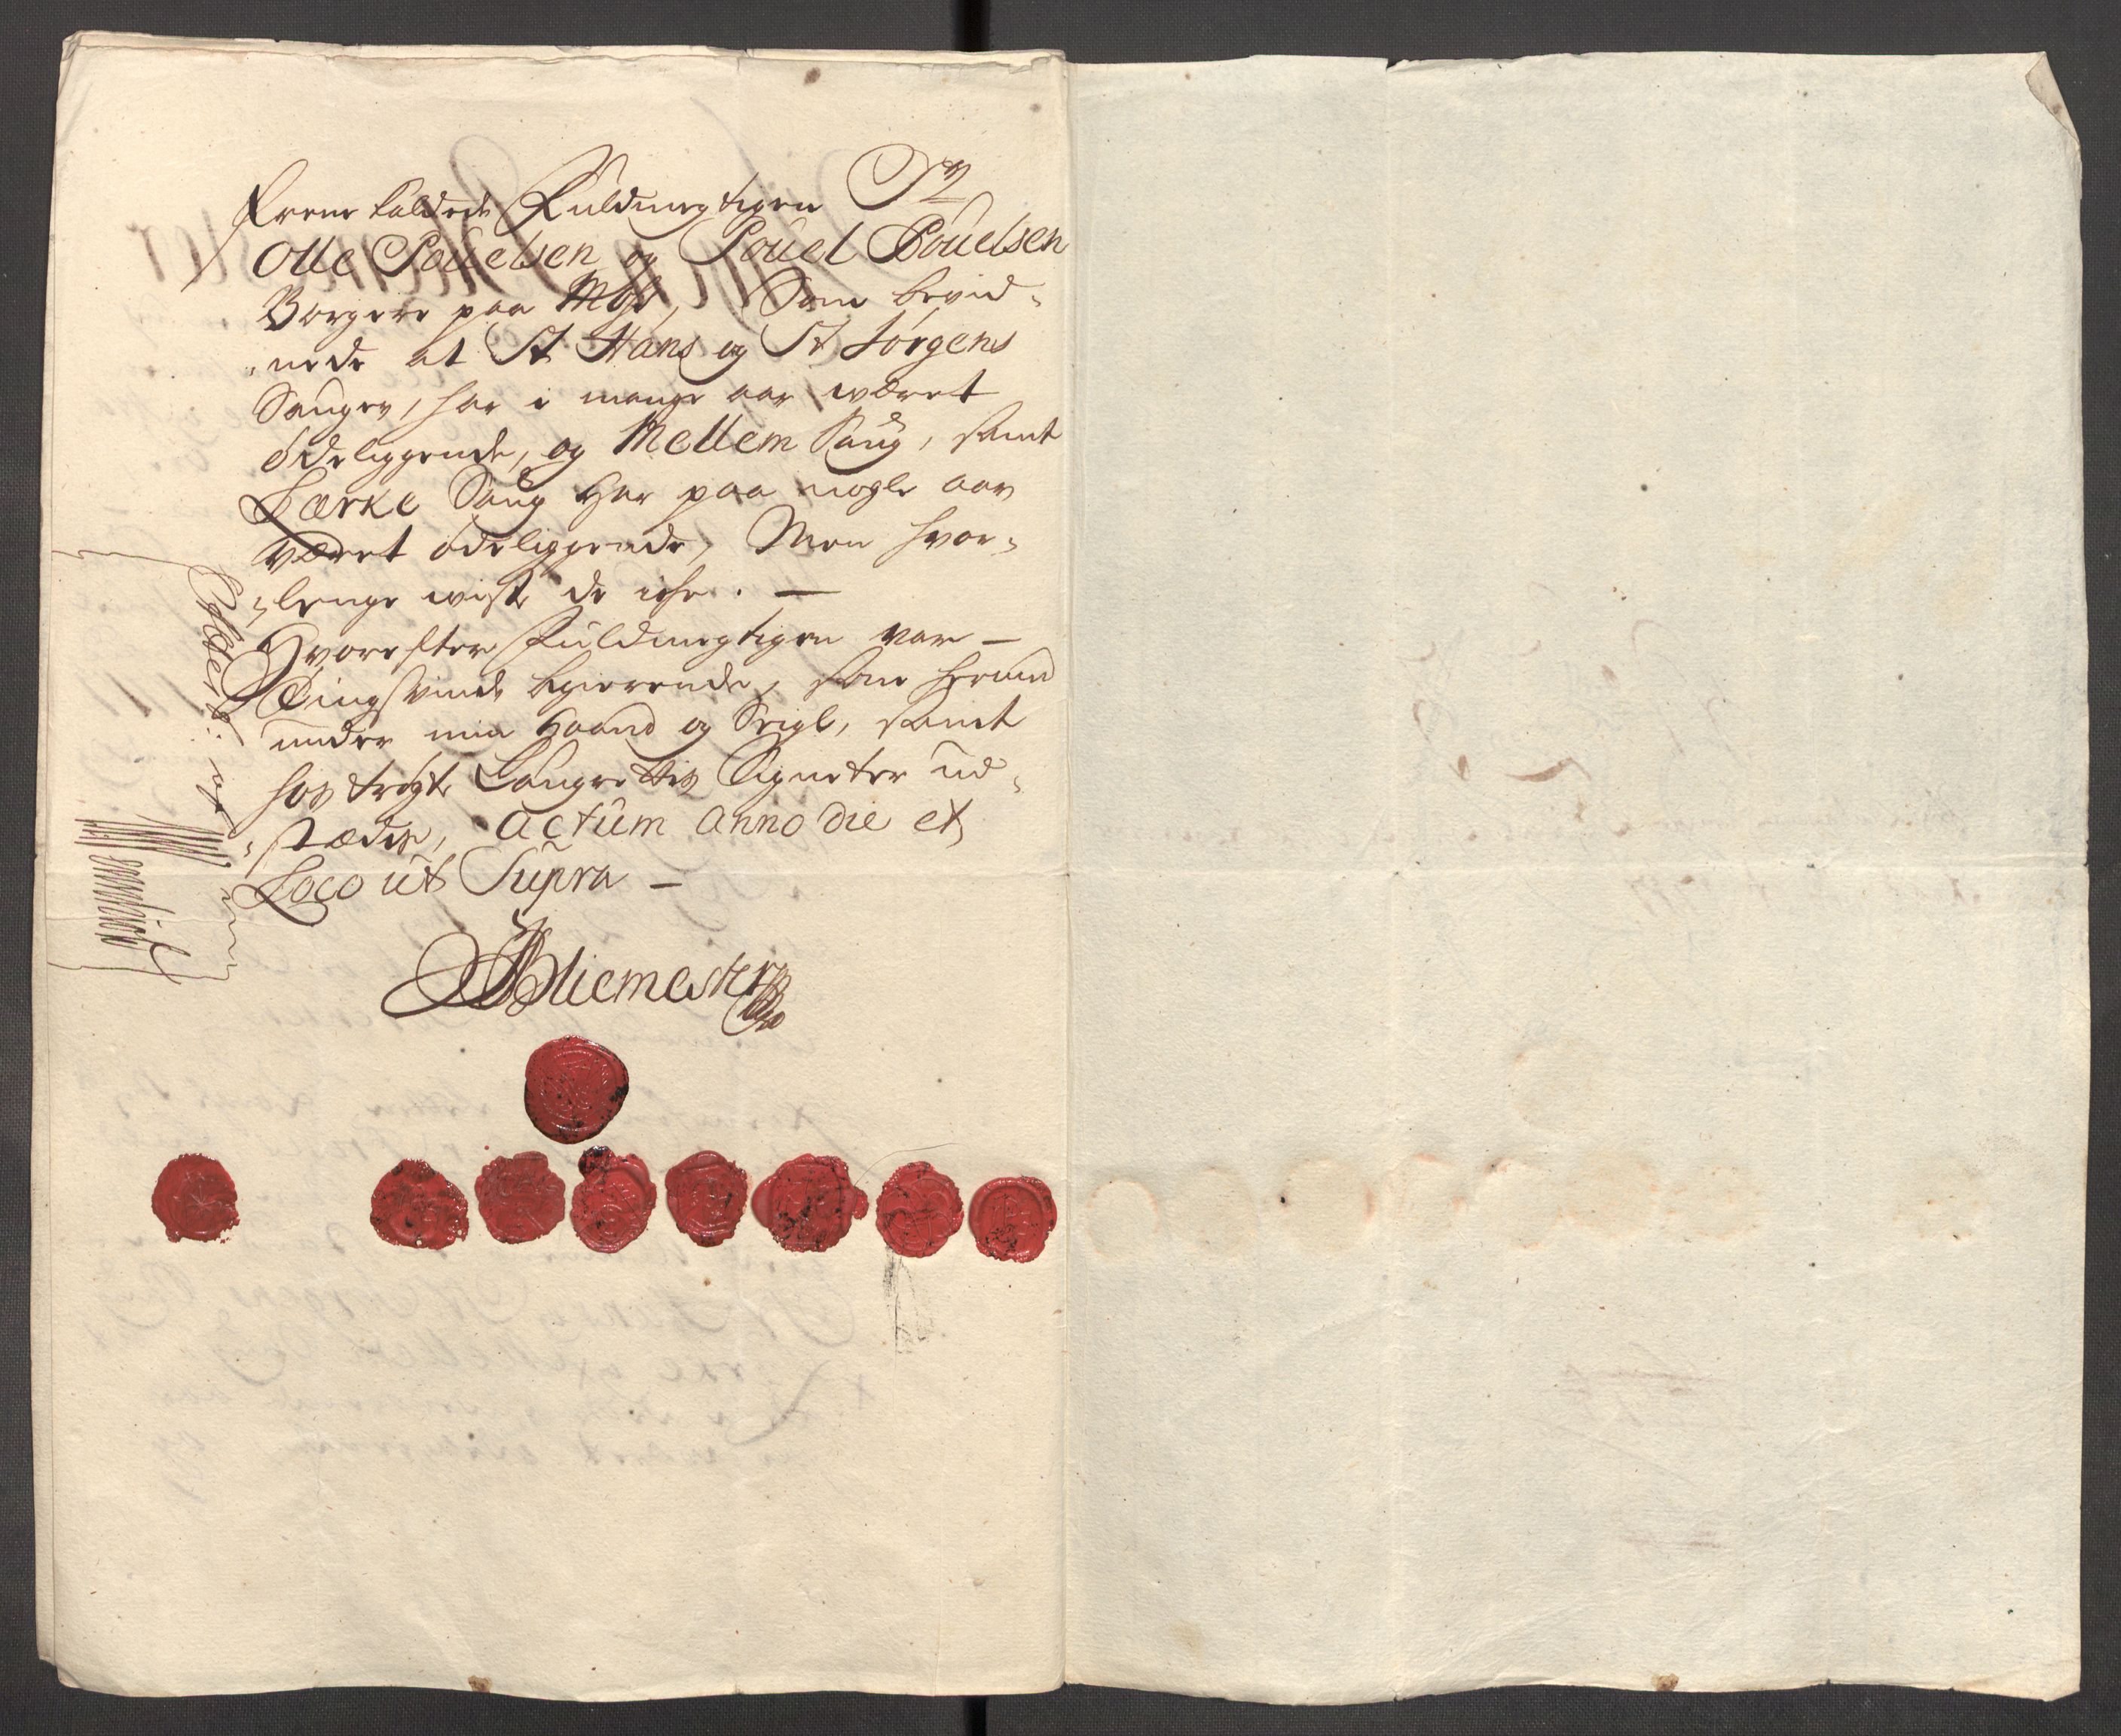 Fremkaldede Fuldmegtigen Sr
Olle Pouelsen og Pouel Pouelsen
Borgere paa Moss, Som bevid-
nede at St Hans og St Jørgens
Sauger, har i mange aar wæret
ødeliggende, og Mellem Saug, samt
Lærke Saug har paa nogle aar
Været ødeliggende, Men hvor-
lenge wiste de iche. —
Hvorefter Fuldmegtigen var —
Tingsvinde begierende, som hermed
under min Haand og Seigl, samt
hostrøgte Laugrettis Signeter ud-
stædes, Actum Anno die et
Loco ut Supra —